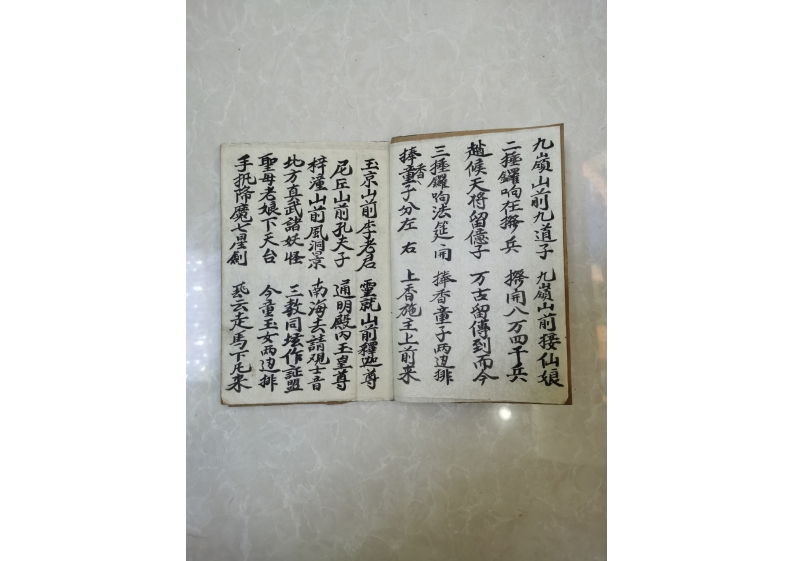 九嶺山前九道子 九嶺山前接仙娘
二捶鑼响在撥兵 撥開八万四千兵
趙候天将留億子 万古留傳到而今
三捶鑼响法筵開 捧香童子两边排
捧香童子分左右 上香施主上前来
玉京山前李老君 靈鷲山前釋迦尊
尼丘山前孔夫子 通明殿内玉皇尊
梓潼山前風洞景 南海去請观士音
北方真武諸妖怪 三教同坛作証盟
聖母老娘下天台 今童玉女两边排
手扺降魔七星劍 云走馬下凡来